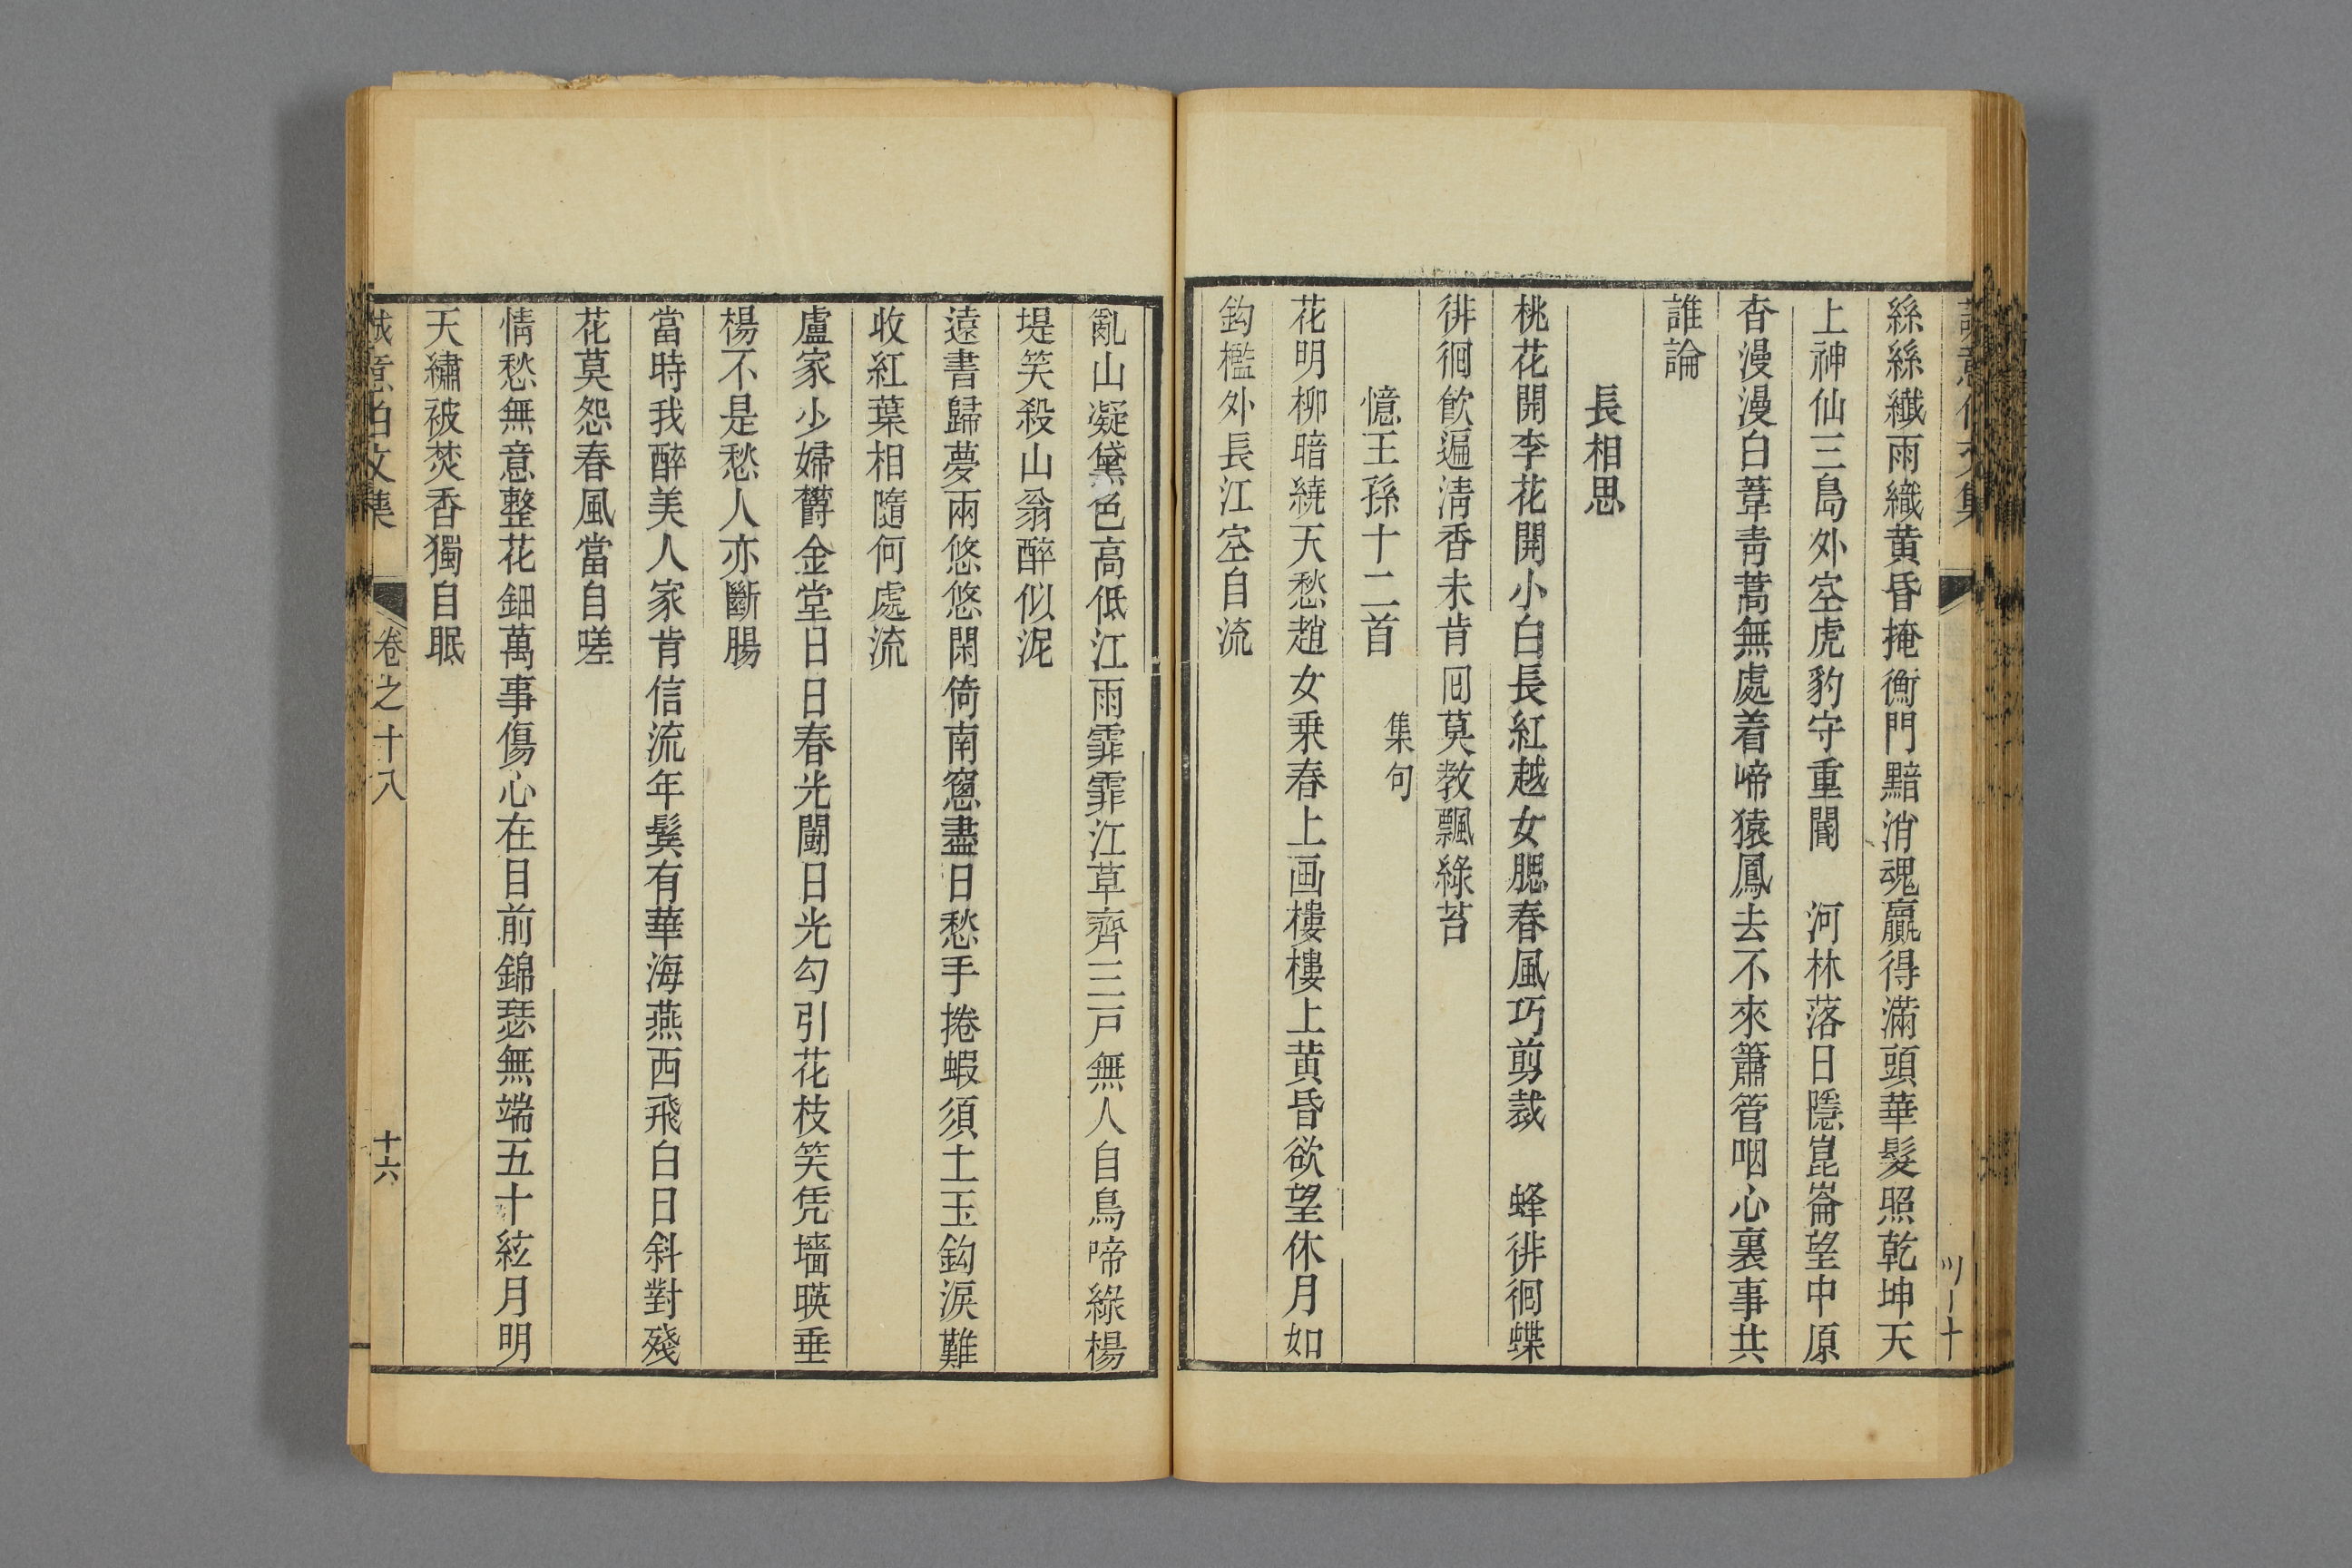 誠意伯文集
絲絲纖雨織黄昏掩衡門黯消魂贏得滿頭華髮照乾坤天
上神仙三島外空虎豹守重閽　河林落日隱崑崙望中原
杳漫漫白葦靑蒿無處着啼猿鳳去不來簫管咽心裏事共
誰論
長相思
桃花開李花開小白長紅越女腮春風巧剪裁　蜂徘徊蝶
徘徊飮遍淸香未肯囘莫教飄綠苔
憶王孫十二首　集句
花明柳暗繞天愁趙女乗春上画樓樓上黄昏欲望休月如
鈎檻外長江空自流
亂山凝黛色高低江雨霏霏江草齊三戸無人自鳥啼綠楊
堤笑殺山翁醉似泥
遠書歸夢兩悠悠閑倚南窻盡日愁手捲蝦須土玉鈎淚難
收紅葉相隨何處流
盧家少婦欎金堂日日春光鬪日光勾引花枝笑凭墻暎垂
楊不是愁人亦斷腸
當時我醉美人家肯信流年鬓有華海燕西飛白日斜對殘
花莫怨春風當自嗟
情愁無意整花鈿萬事傷心在目前錦瑟無端五十絃月明
天繡被焚香獨自眠
誠意伯文集　卷之十八　十六